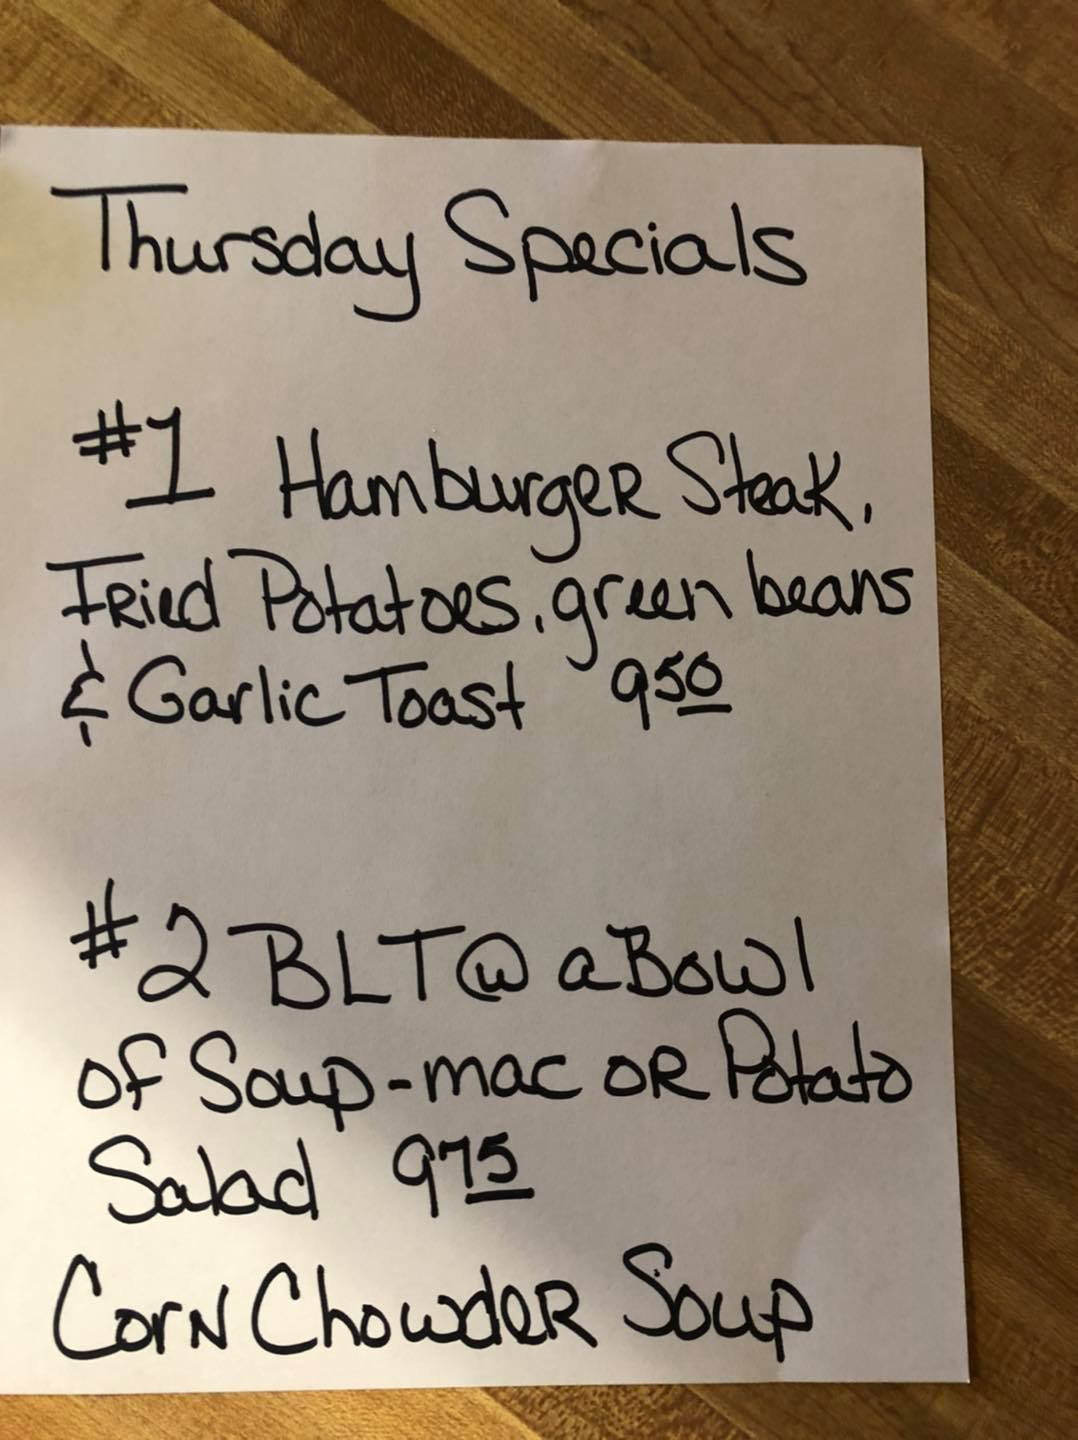 Thursday Specials
#1 Hamburger Steak,
Fried Potatoes, green beans
& Garlic Toast 9 50
#2 BLT @ a Bowl
of Soup-mac or Potato
Salad 9 75
Corn Chowder Soup